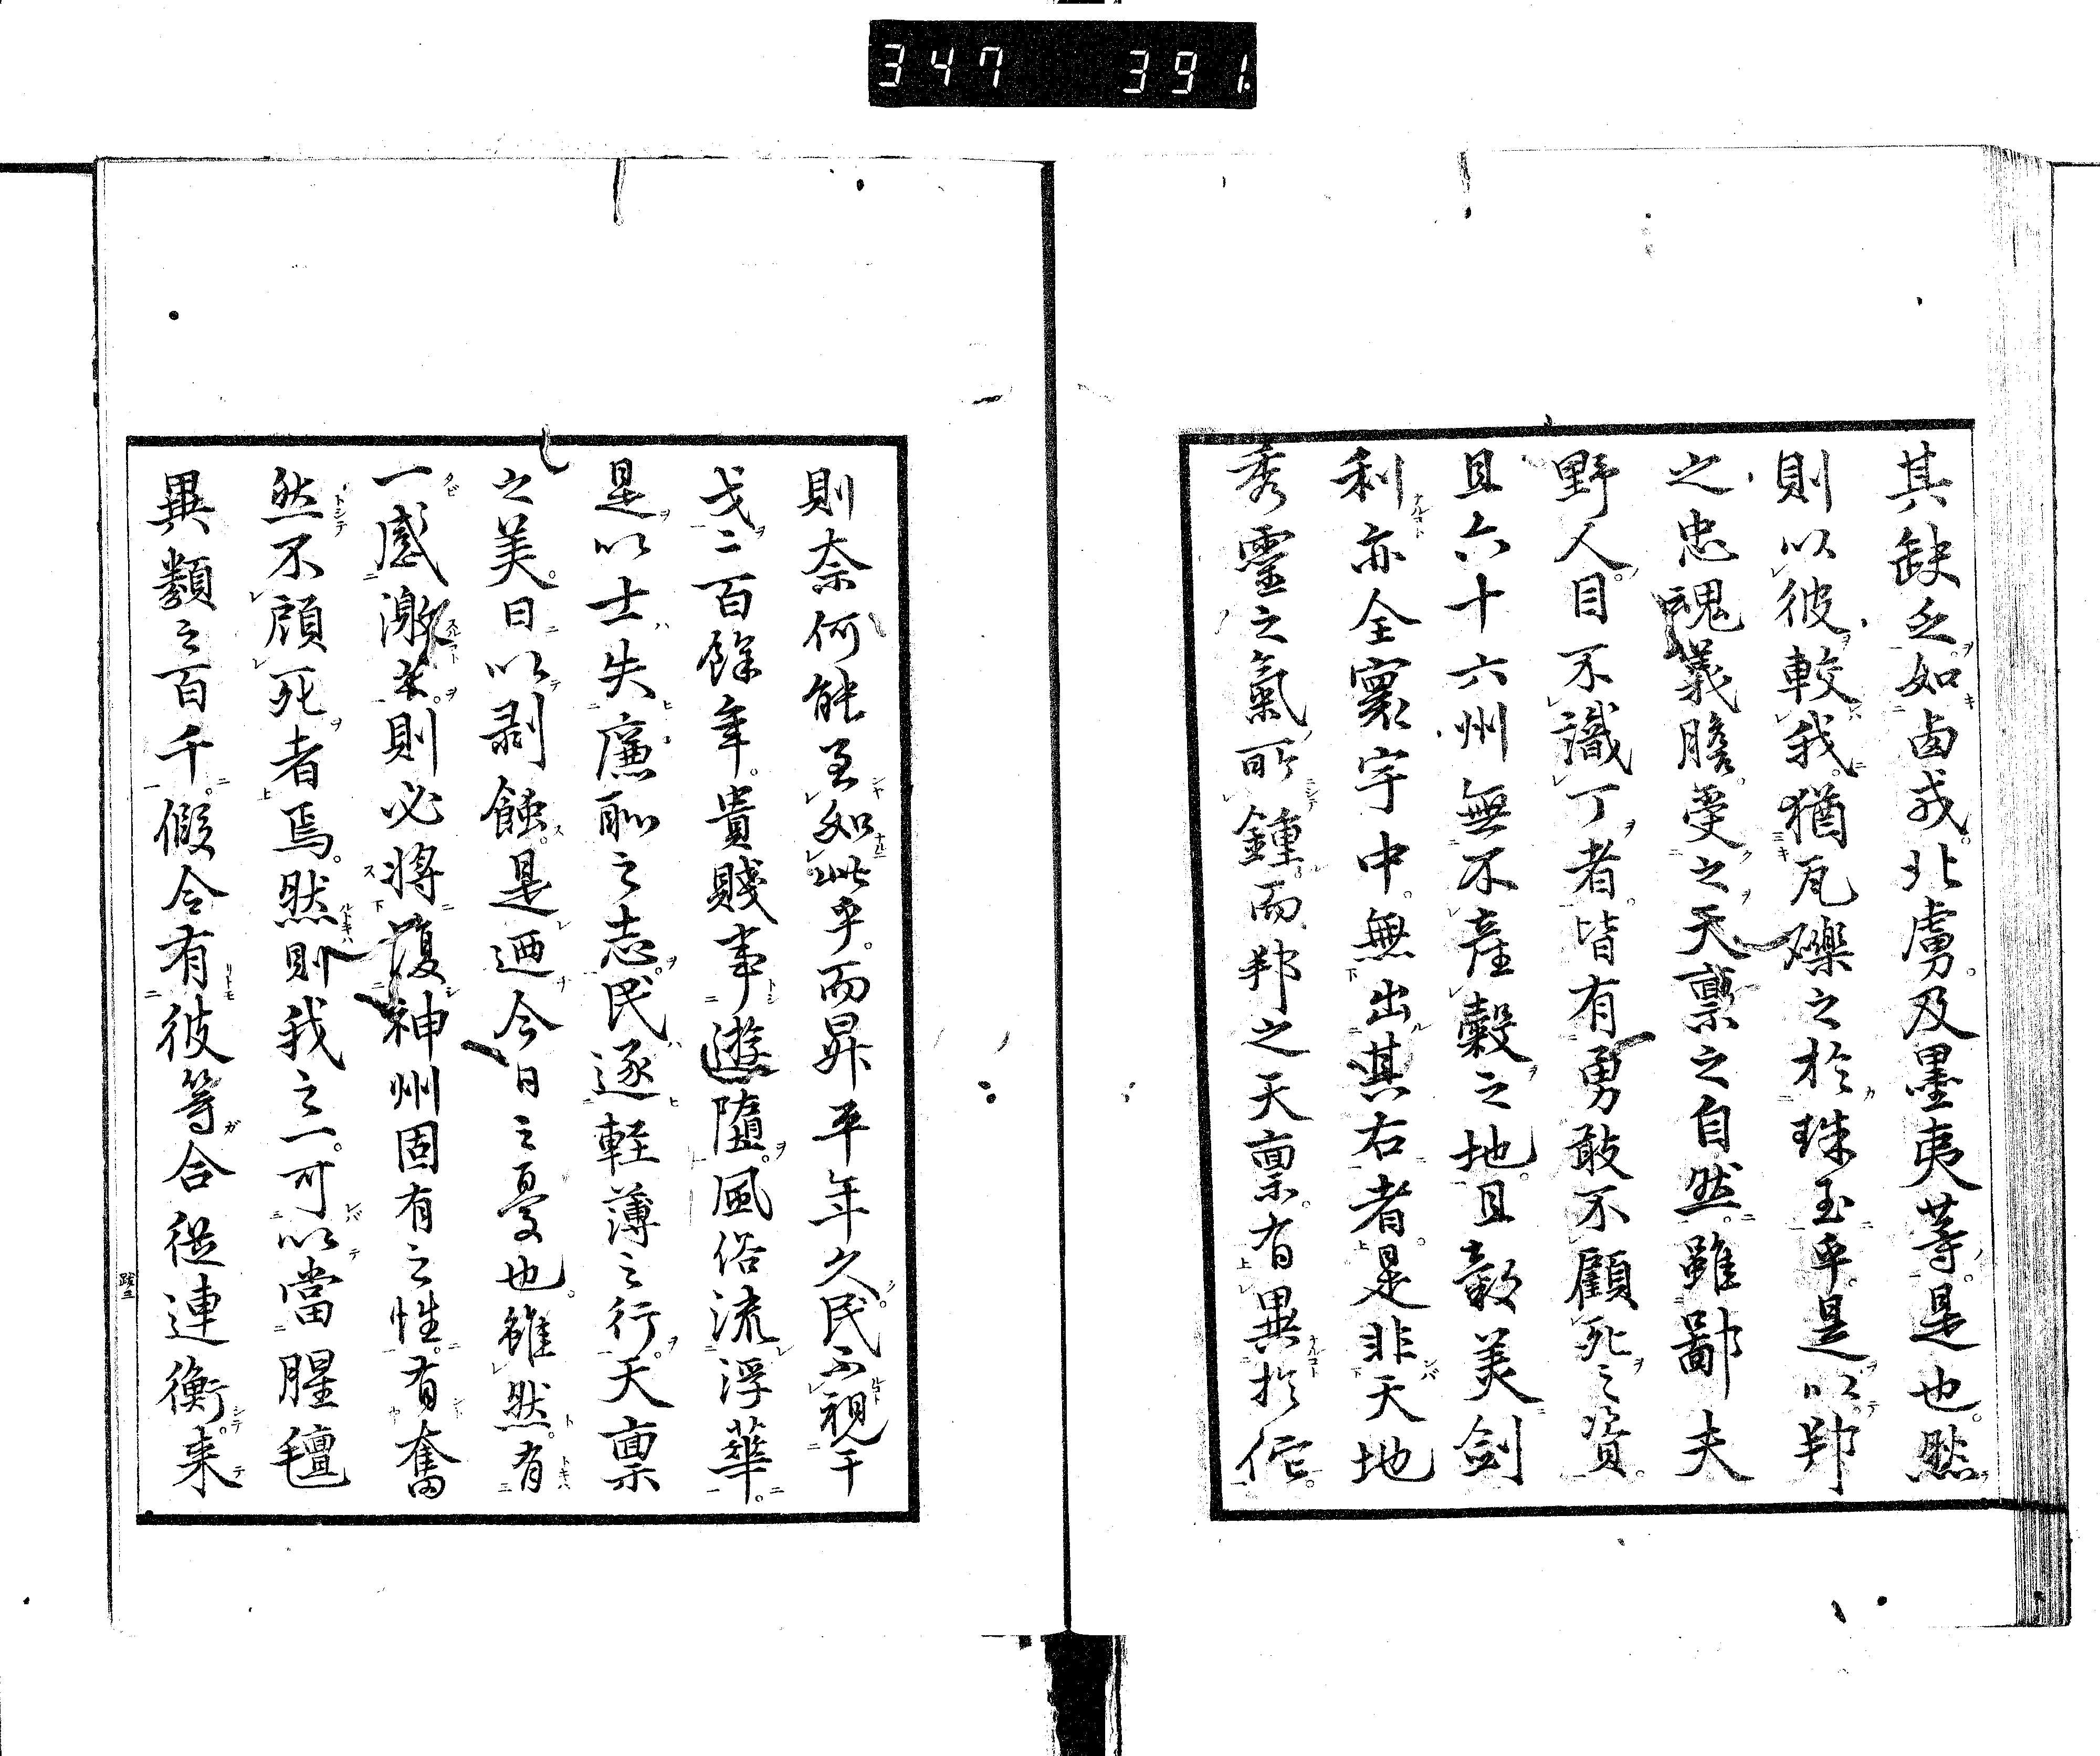 347 391
其缺乏如鹵戎北虜及墨夷等是也然
則以彼較我猶瓦礫之於珠玉乎是以邦
之忠魂義膽受之天稟之自然雖鄙夫
野人目不識丁者皆有勇敢不顧死之資
且六十六州無不産穀之地且穀美剣
利亦全寰宇中無出其右者是非天地
秀霊之氣所鍾而邦之天稟有異於佗
則奈何能至如此乎而昇平年久民不視干
戈二百餘年貴賤事遊隨風俗流浮華
是以士失廉恥之志民逐軽薄之行天稟
之美日以剥蝕是迺今日之憂也雖然有
一感激者則必將復神州固有之性有奮
然不顧死者焉然則我之一可以當腥羶
異類之百千假令有彼等合従連衡来